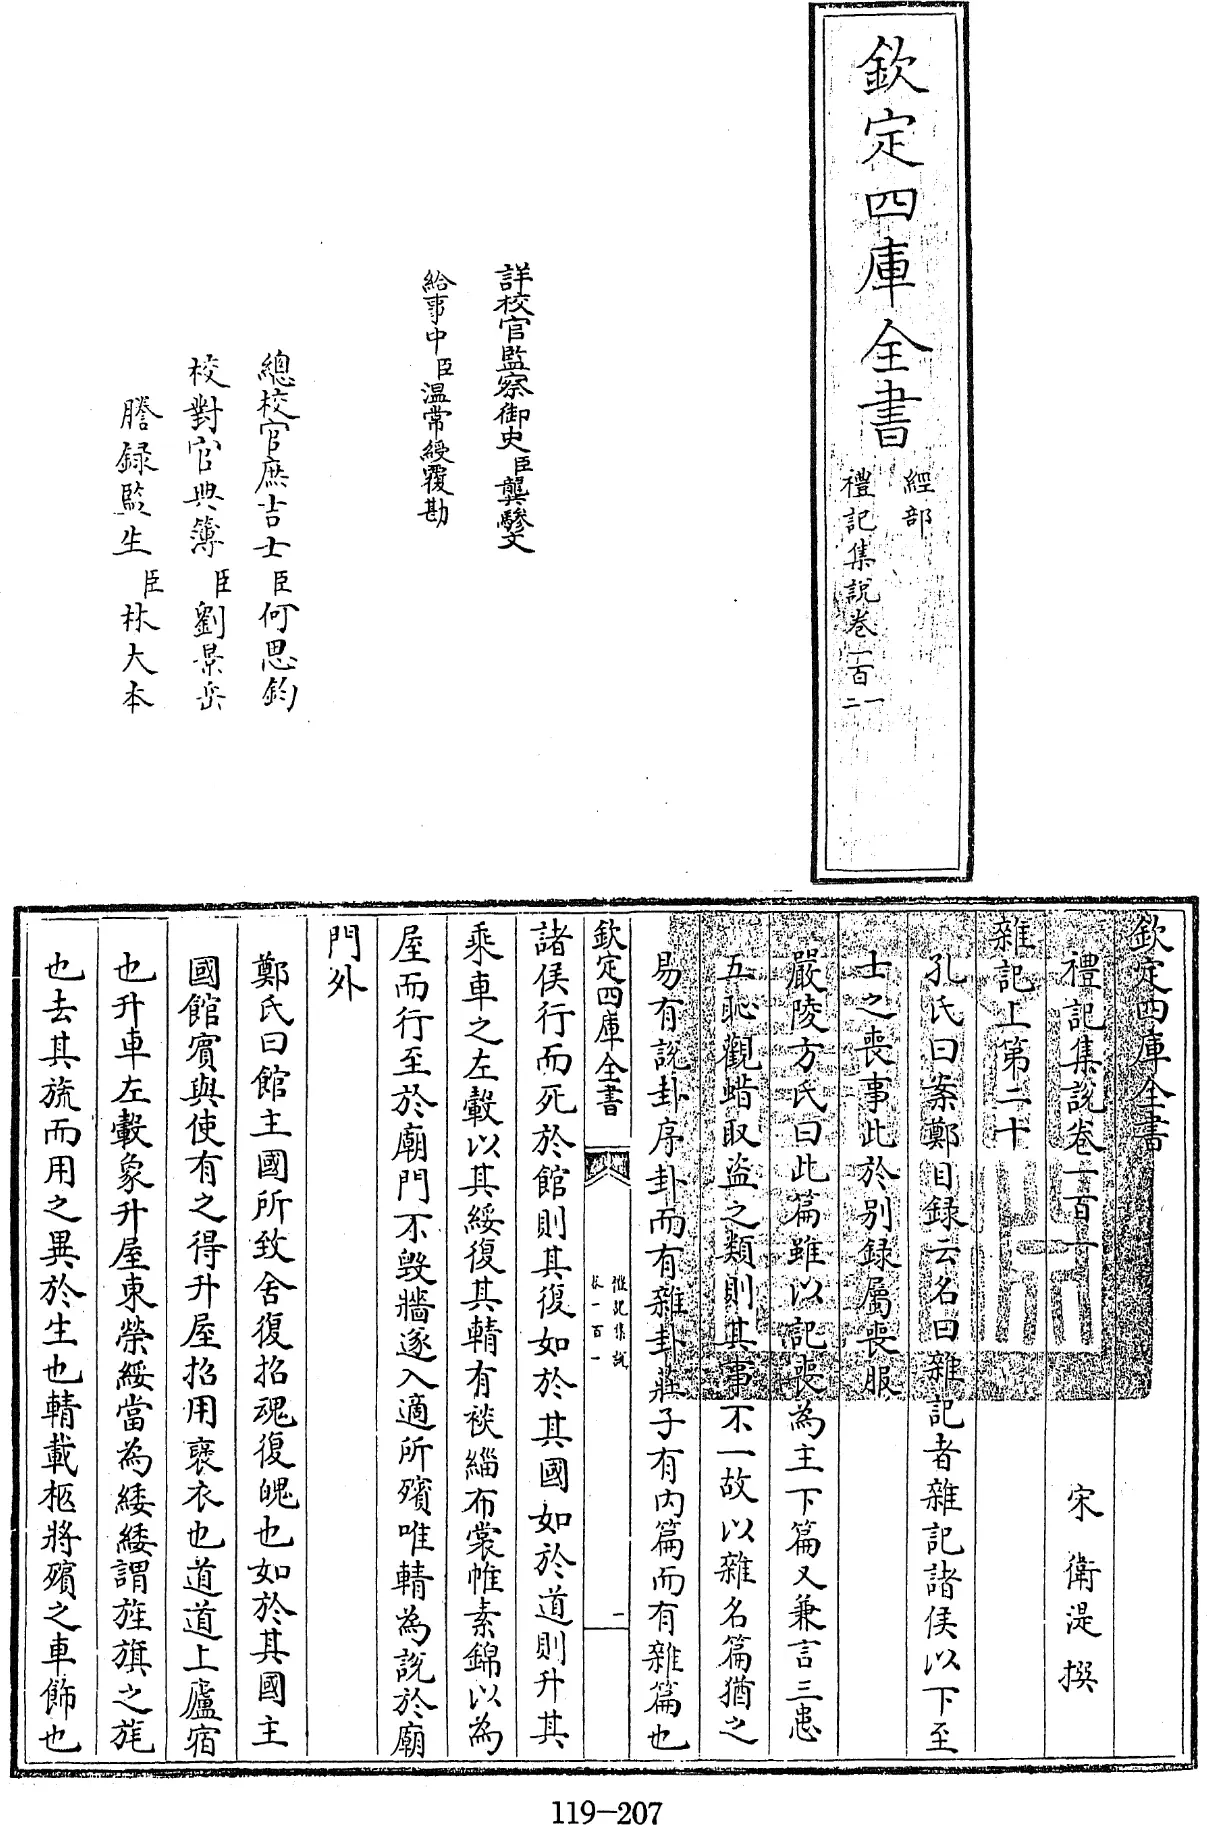 欽定四庫全書
經部
禮記集說卷一百一
二
詳校官監察御史臣龔驂文
給事中臣溫常綬覆勘
總校官庶吉士臣何思鈞
校對官典簿臣劉景岳
謄録監生臣林大本
欽定四庫全書
禮記集說卷一百一
宋 衛湜 撰
雜記上第二十
孔氏曰案鄭目録云名曰雜記者雜記諸侯以下至
士之喪事此於别録屬喪服
嚴陵方氏曰此篇雖以記喪為主下篇又兼言三患
五恥觀蜡取盗之類則其事不一故以雜名篇猶之
易有說卦序卦而有雜卦莊子有内篇而有雜篇也
欽定四庫全書
禮記集說
卷一百一
諸侯行而死於館則其復如於其國如於道則升其
乘車之左轂以其綏復其輤有裧緇布裳帷素錦以為
屋而行至於廟門不毁牆遂入適所殯唯輤為說於廟
門外
鄭氏曰館主國所致舍復招魂復魄也如於其國主
國館賓與使有之得升屋招用褒衣也道道上廬宿
也升車左轂象升屋東榮綏當為緌緌謂旌旗之旄
也去其旒而用之異於生也輤載柩將殯之車飾也
119-207